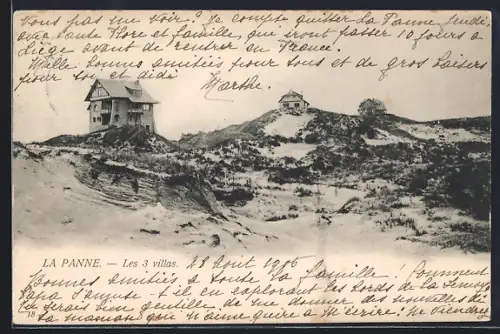 vous pas une voir? Je compte quitter La Panne lundi
avec tante Flore et famille, qui iront passer 10 jours à
Liège avant de rentrer en France.
Mille bonnes amitiés pour tous et de gros baisers
pour toi et didi Marthe.
LA PANNE. — Les 3 villas. 18 Août 1906
Bonnes amitiés à toute la famille! Comment
Papa s'amuse-t-il en explorant les bords de la
Tu serais bien gentille de me donner des nouvelles de
ta maman qui n'aime guère à m'écrire! Me viendrez
18